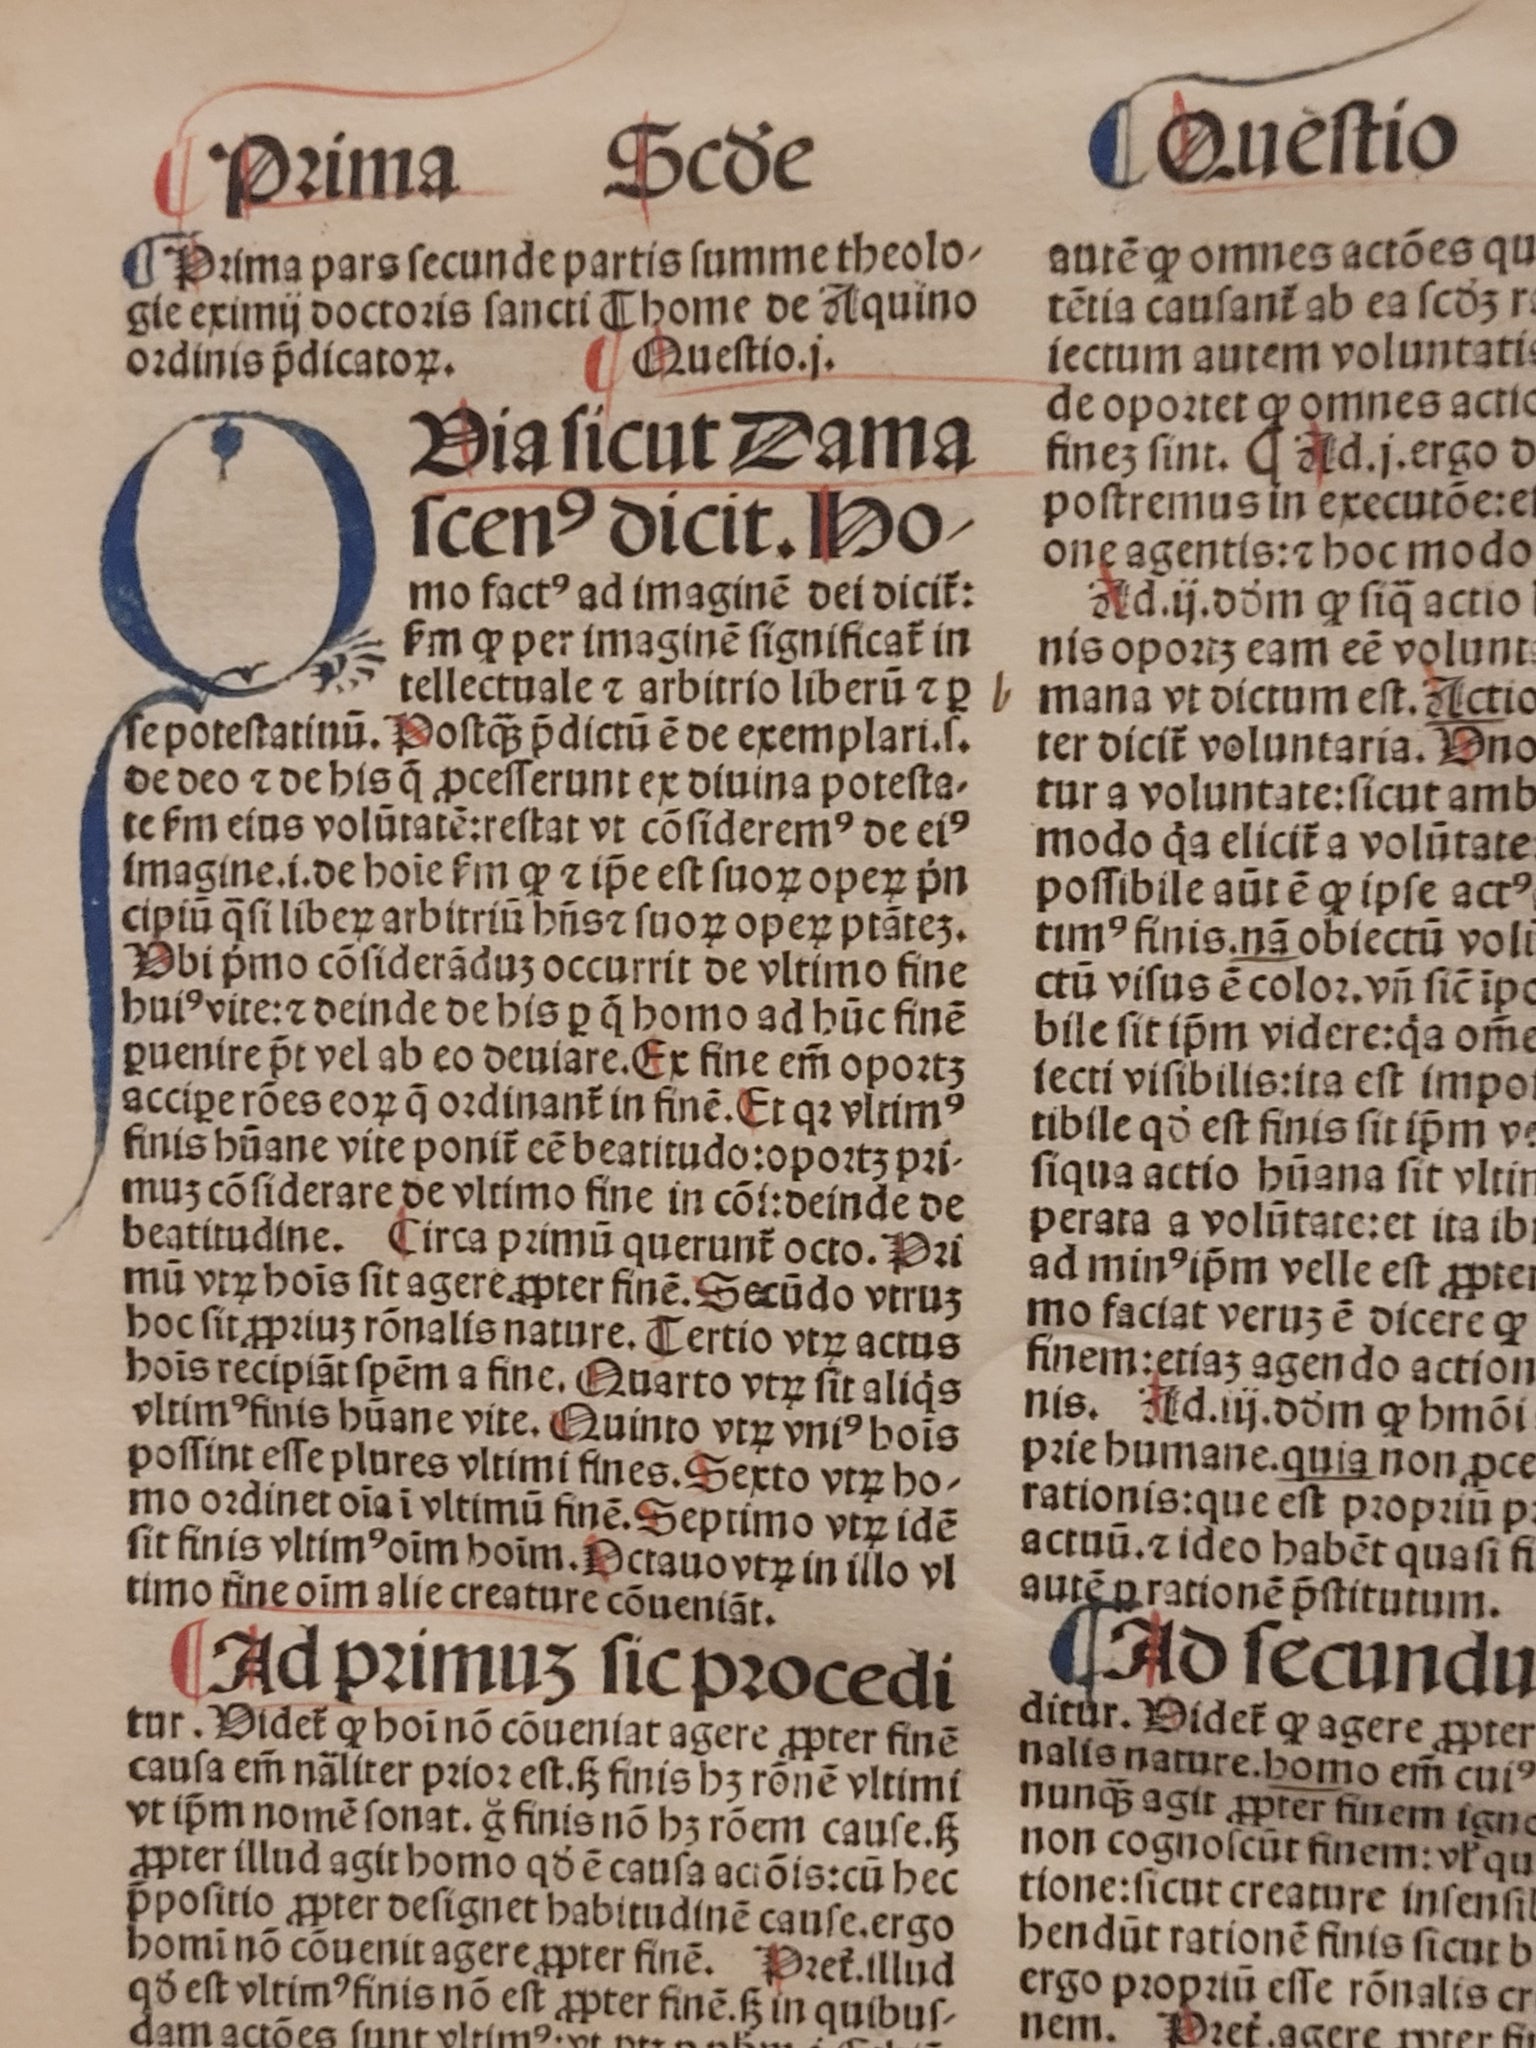 ¶Prima Scd̄e
¶Questio
¶Prima pars secunde partis summe theolo⸗
gie eximij doctoris sancti Thome de Aquino
ordinis p̄dicatoꝝ. ¶Questio.j.
QVia sicut Dama
scenꝰ dicit. Ho⸗
mo factꝰ ad imaginē dei dicit̄:
ẜm ꝙ per imaginē significat̄ in
tellectuale ⁊ arbitrio liberū ⁊ ꝑ
se potestatiuū. Postqꝫ̄ p̄dictū ē de exemplari.s.
de deo ⁊ de his q̄ ꝓcesserunt ex diuina potesta⸗
te ẜm eius volūtatē:restat vt cōsideremꝰ de eiꝰ
imagine.i.de hoīe ẜm ꝙ ⁊ ip̄e est suoꝝ opeꝝ pͥn
cipiū q̄si libeꝝ arbitriū hn̄s ⁊ suoꝝ opeꝝ ptātez.
Vbi pͥmo cōsiderāduꝫ occurrit de vltimo fine
huiꝰ vite:⁊ deinde de his ꝑ q̄ homo ad hūc finē
ꝑuenire pt̄ vel ab eo deuiare.Ex fine em̄ oportꝫ
accipe rōes eoꝝ q̄ ordinant̄ in finē.Et qꝛ vltimꝰ
finis hūane vite ponit̄ eē beatitudo:oportꝫ pri⸗
muꝫ cōsiderare de vltimo fine in cōi:deinde de
beatitudine. Circa primū querunt̄ octo. Pri
mū vtꝝ hoīs sit agere ꝓpter finē.Secūdo vtruꝫ
hoc sit ꝓpriuꝫ rōnalis nature. Tertio vtꝝ actus
hoīs recipiāt spēm a fine. Quarto vtꝝ sit aliqͥs
vltimꝰ finis hūane vite. Quinto vtꝝ vniꝰ hoīs
possint esse plures vltimi fines.Sexto vtꝝ ho⸗
mo ordinet oīa ī vltimū finē.Septimo vtꝝ idē
sit finis vltimꝰ oīm hoīm.Octauo vtꝝ in illo vl
timo fine oīm alie creature cōueniāt.
¶Ad primuꝫ sic procedi
tur. Videt̄ ꝙ hoī nō cōueniat agere ꝓpter finē
causa em̄ nāliter prior est.ſꝫ finis hꝫ rōnē vltimi
vt ip̄m nomē sonat. g̊ finis nō hꝫ rōem cause.ſꝫ
ꝓpter illud agit homo qd̄ ē causa actōis:cū hec
p̄positio ꝓpter designet habitudinē cause.ergo
homī nō cōuenit agere ꝓpter finē. Pret̄.illud
qd̄ est vltimꝰ finis nō est ꝓpter finē.ſꝫ in quibus⸗
dam actōes sunt vltimꝰ:vt
autē ꝙ omnes actōes qu
tētia causant̄ ab ea scd̄ꝫ r
iectum autem voluntatis
de oportet ꝙ omnes actio
finez sint. ¶ Ad.j.ergo d
postremus in executōe:e
one agentis:⁊ hoc modo
Ad.ij.dōm ꝙ siq̄ actio
nis oportꝫ eam eē volunt
mana vt dictum est. Actio
ter dicit̄ voluntaria. Vno
tur a voluntate:sicut amb
modo qͥa elicit̄ a volūtate
possibile aūt ē ꝙ ipse actꝰ
timꝰ finis.nā obiectū vol
ctū visus ē color.vn̄ sic̄ īpo
bile sit ip̄m videre:qͥa om̄e
iecti visibilis:ita est impo
tibile qd̄ est finis sit ip̄m v
siqua actio hūana sit vlti
perata a volūtate:et ita ib
ad minꝰ ip̄m velle est ꝓpter
mo faciat veruꝫ ē dicere ꝙ
finem:etiaꝫ agendo action
nis. Ad.iij.dōm ꝙ hmōi
prie humane.quia non ꝓce
rationis:que est propriū p
actuū.⁊ ideo habēt quasi fi
autē ꝑ rationē p̄stitutum.
¶Ad secundu
ditur. Videt̄ ꝙ agere ꝓpter
nalis nature.homo em̄ cuiꝰ
nunqꝫ̄ agit ꝓpter finem igno
non cognoscūt finem:vl̄ qu
tione:sicut creature insensi
hendūt rationē finis sicut b
ergo propriū esse rōnalis cr
nem. Pret̄.agere ꝓpter fi